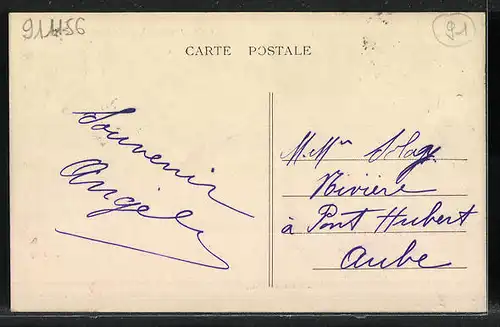 91456
91
CARTE POSTALE
Souvenir
Angèle
Rivière
à Pont Hubert
Aube